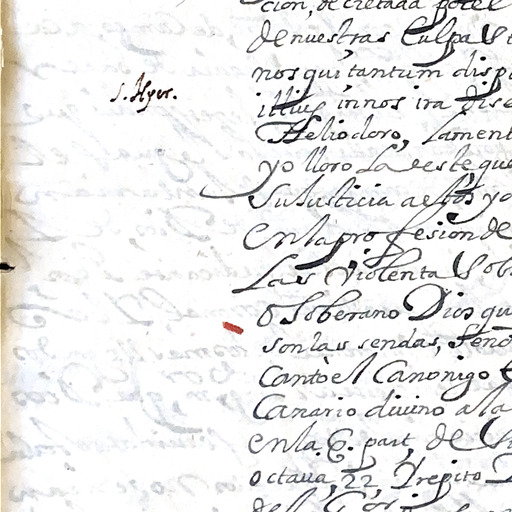 cion, decretada por el
de nuestras Culpas
nos qui tantum disp
S. Hyer.
illius in nos ira dise
Heliodoro, lament
yo lloro La este, que
Su Justicia a estos yo
En la profesion de
Las Violenta
O Soberano Dios qu
son las sendas, Seño
Cantò el Canonigo
Canario divino a la
en la. 6. part, de
octava, 22, Y repito
del